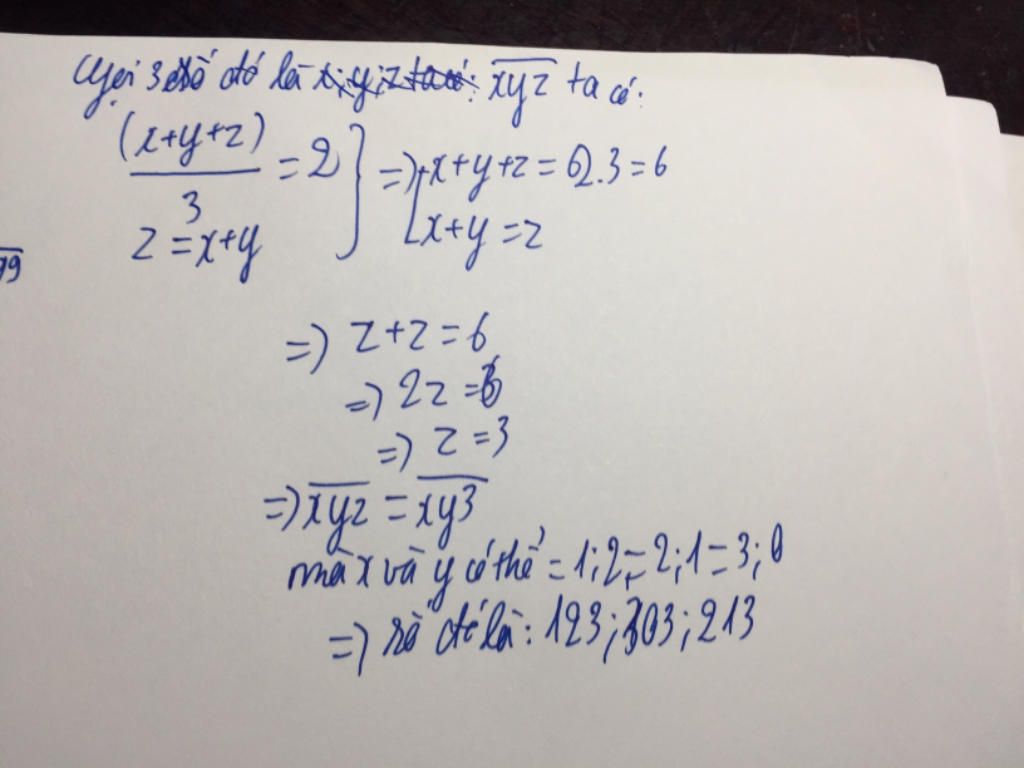 Gọi 3 số đó là x;y;z ta có: xyz ta có:
(x+y+z)/3 = 2 } => [x+y+z = 2.3 = 6
z = x+y } [x+y = z
99
=> z+z = 6
=> 2z = 6
=> z = 3
=> xyz = xy3
mà x và y có thể = 1;2 = 2;1 = 3;0
=> số đó là: 123; 303; 213